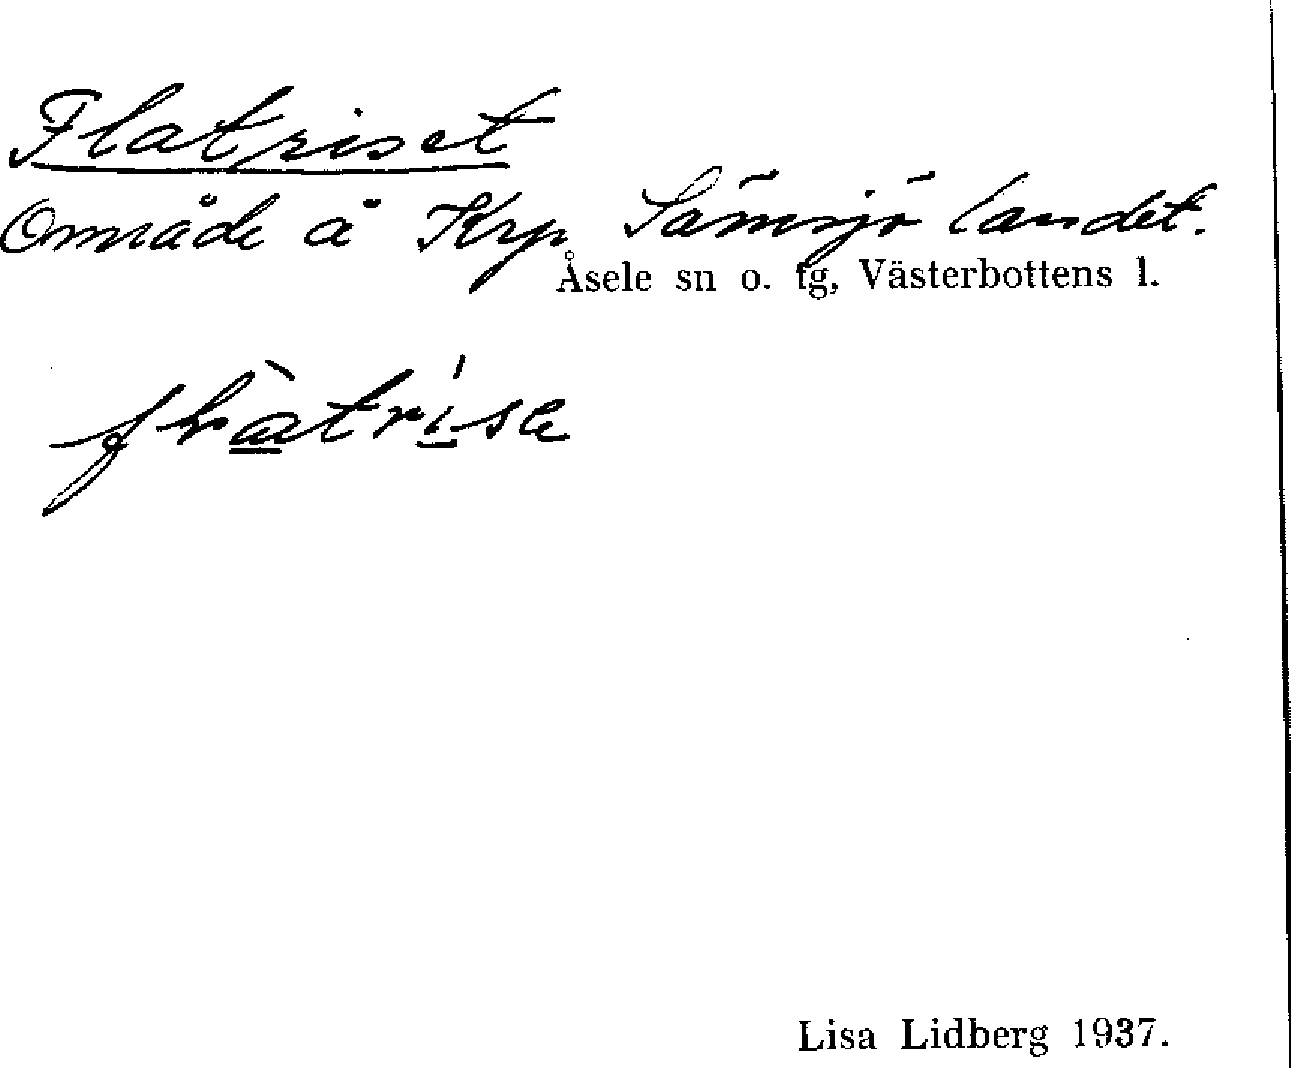 Flatriset
Område å Krp. Sämsjölandet.
Åsele sn o. tg, Västerbottens l.
Lisa Lidberg 1937.